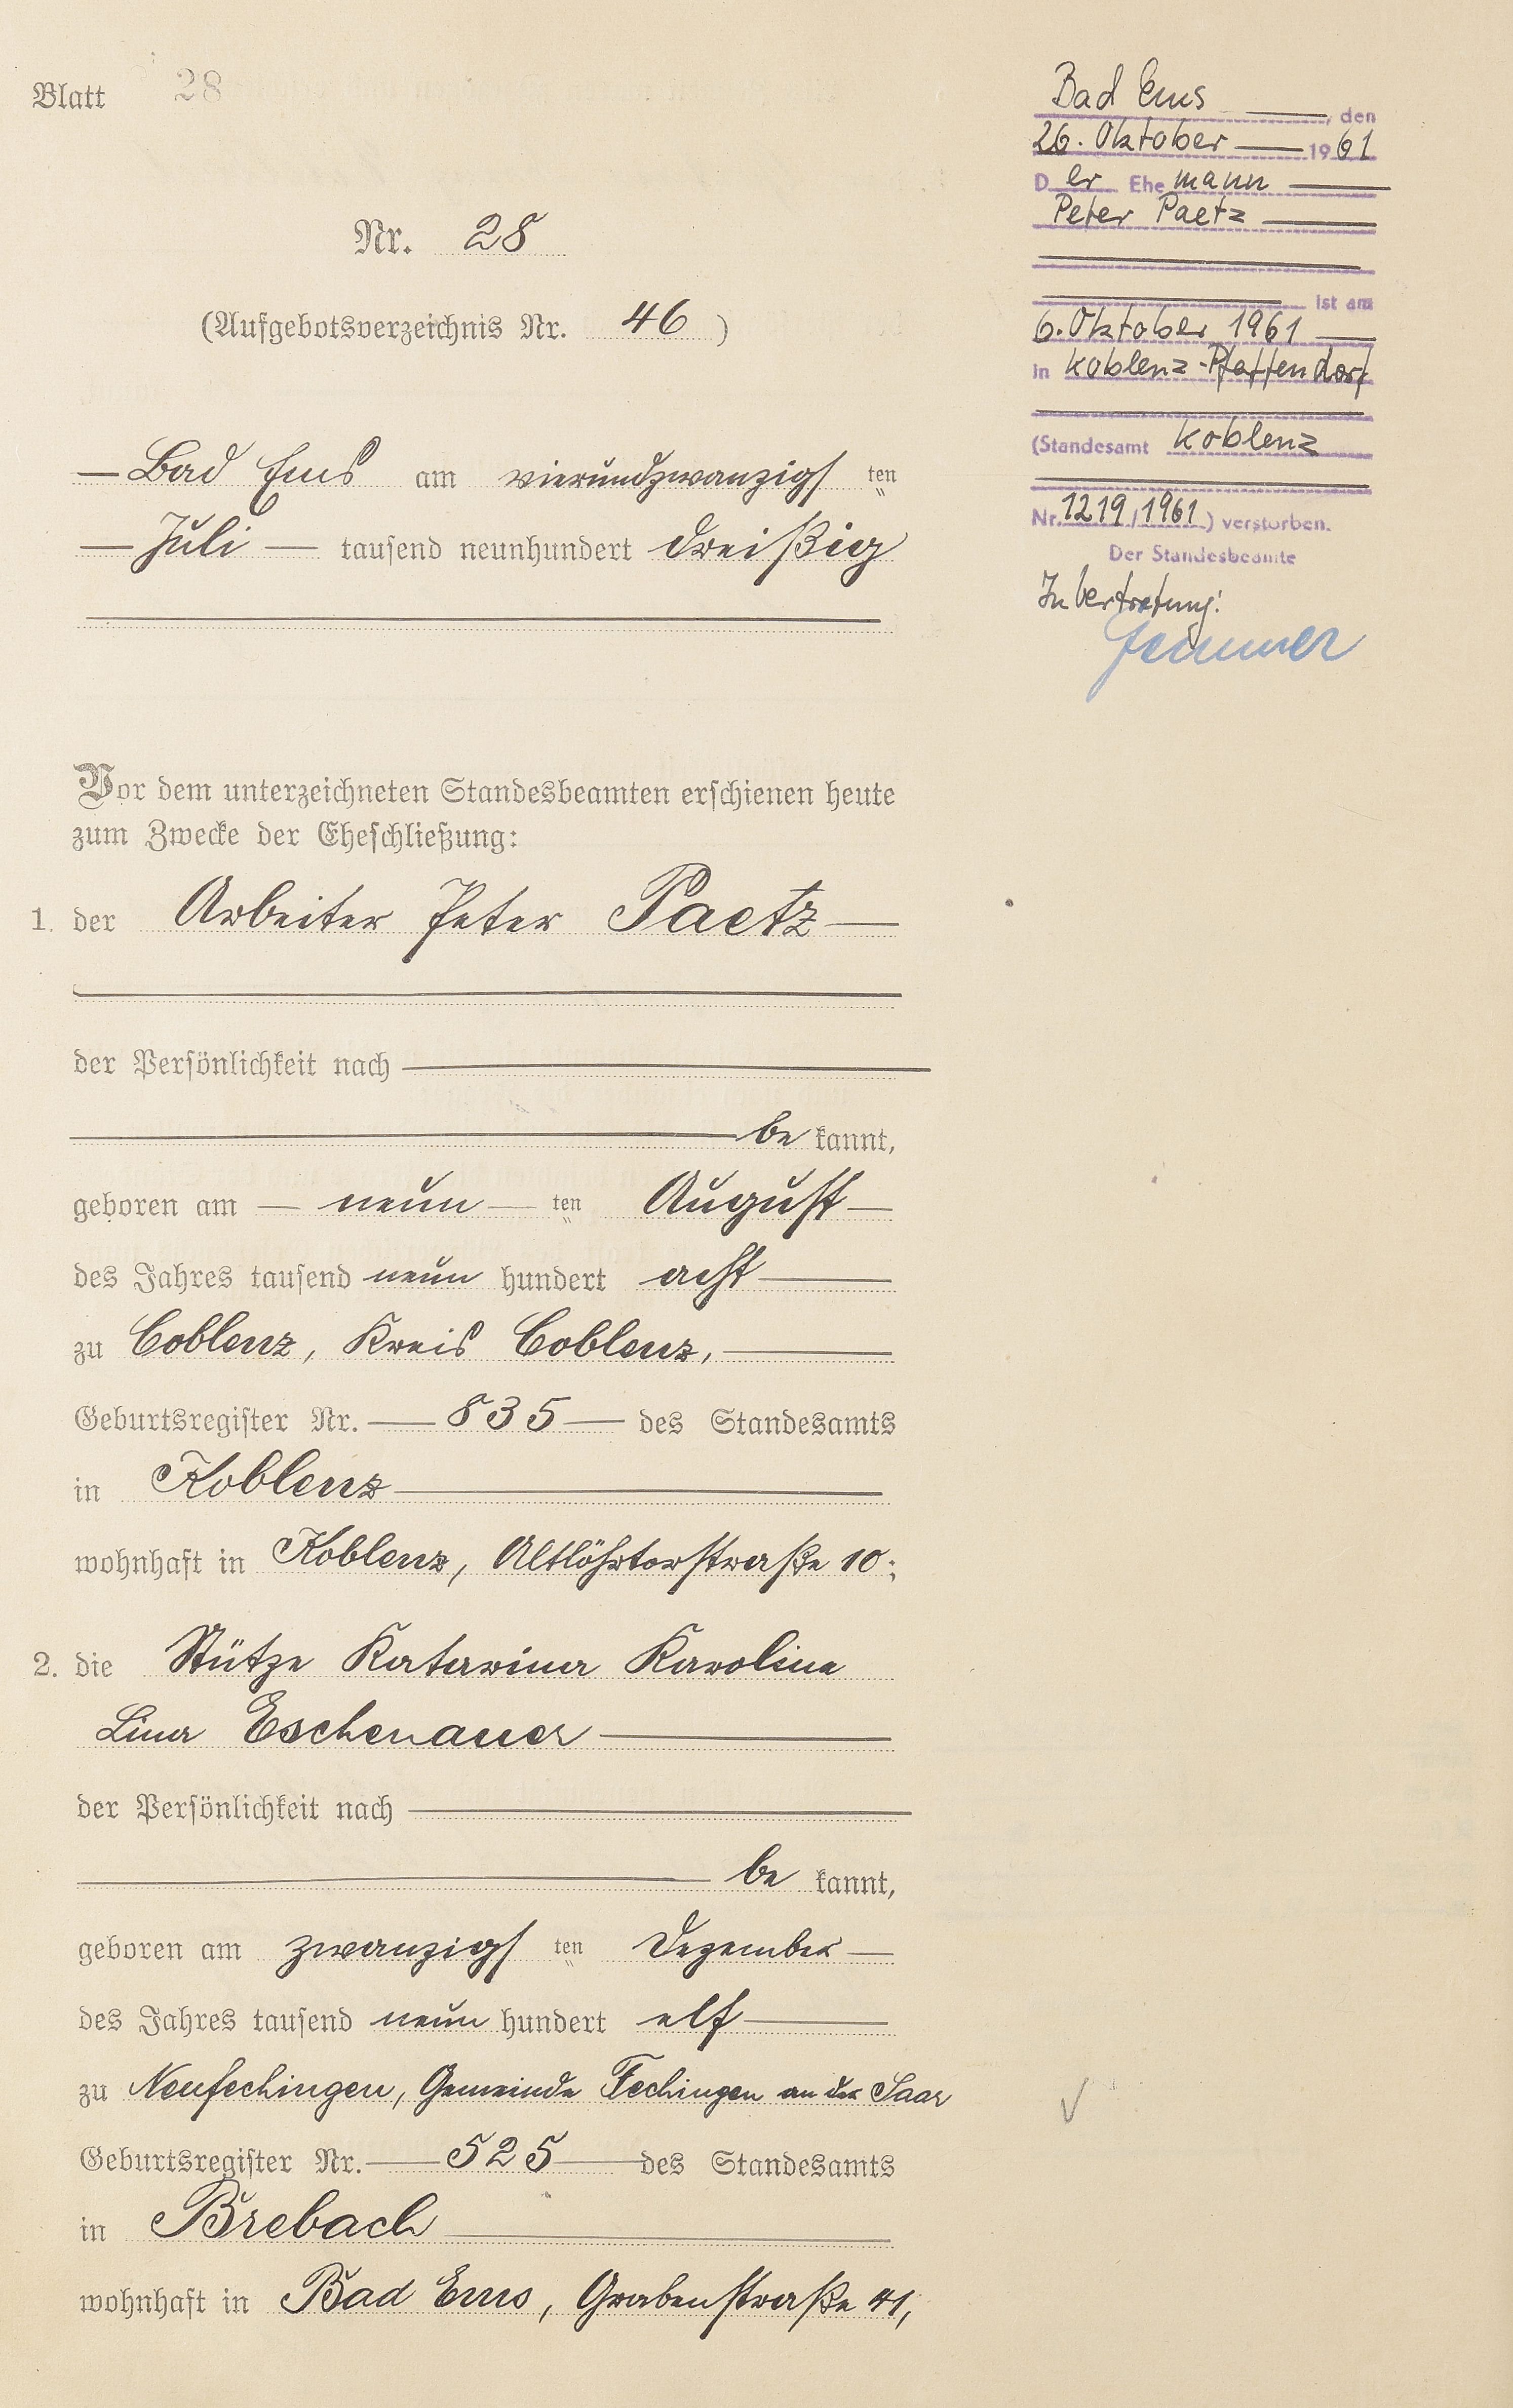 Blatt 28
Nr. 28
(Aufgebotsverzeichnis Nr. 46)
Bad Ems am vierundzwanzigsten
Juli tausend neunhundert dreißig
Vor dem unterzeichneten Standesbeamten erschienen heute
zum Zwecke der Eheschließung:
1. der Arbeiter Peter Paetz
der Persönlichkeit nach
be kannt,
geboren am neun ten August
des Jahres tausend neun hundert acht
zu Coblenz, Kreis Coblenz,
Geburtsregister Nr. 835 des Standesamts
in Koblenz
wohnhaft in Koblenz, Altlöhrtorstraße 10;
2. die Stütze Katarina Karolina
Lina Eschenauer
der Persönlichkeit nach
be kannt,
geboren am zwanzigsten Dezember
des Jahres tausend neun hundert elf
zu Neufechingen, Gemeinde Fechingen an der Saar
Geburtsregister Nr. 525 des Standesamts
in Brebach
wohnhaft in Bad Ems, Grabenstraße 41,
Bad Ems, den
26. Oktober 1961
Der Ehemann
Peter Paetz
ist am
6. Oktober 1961
in Koblenz-Pfaffendorf
(Standesamt Koblenz
Nr. 1219/1961) verstorben.
Der Standesbeamte
In Vertretung: